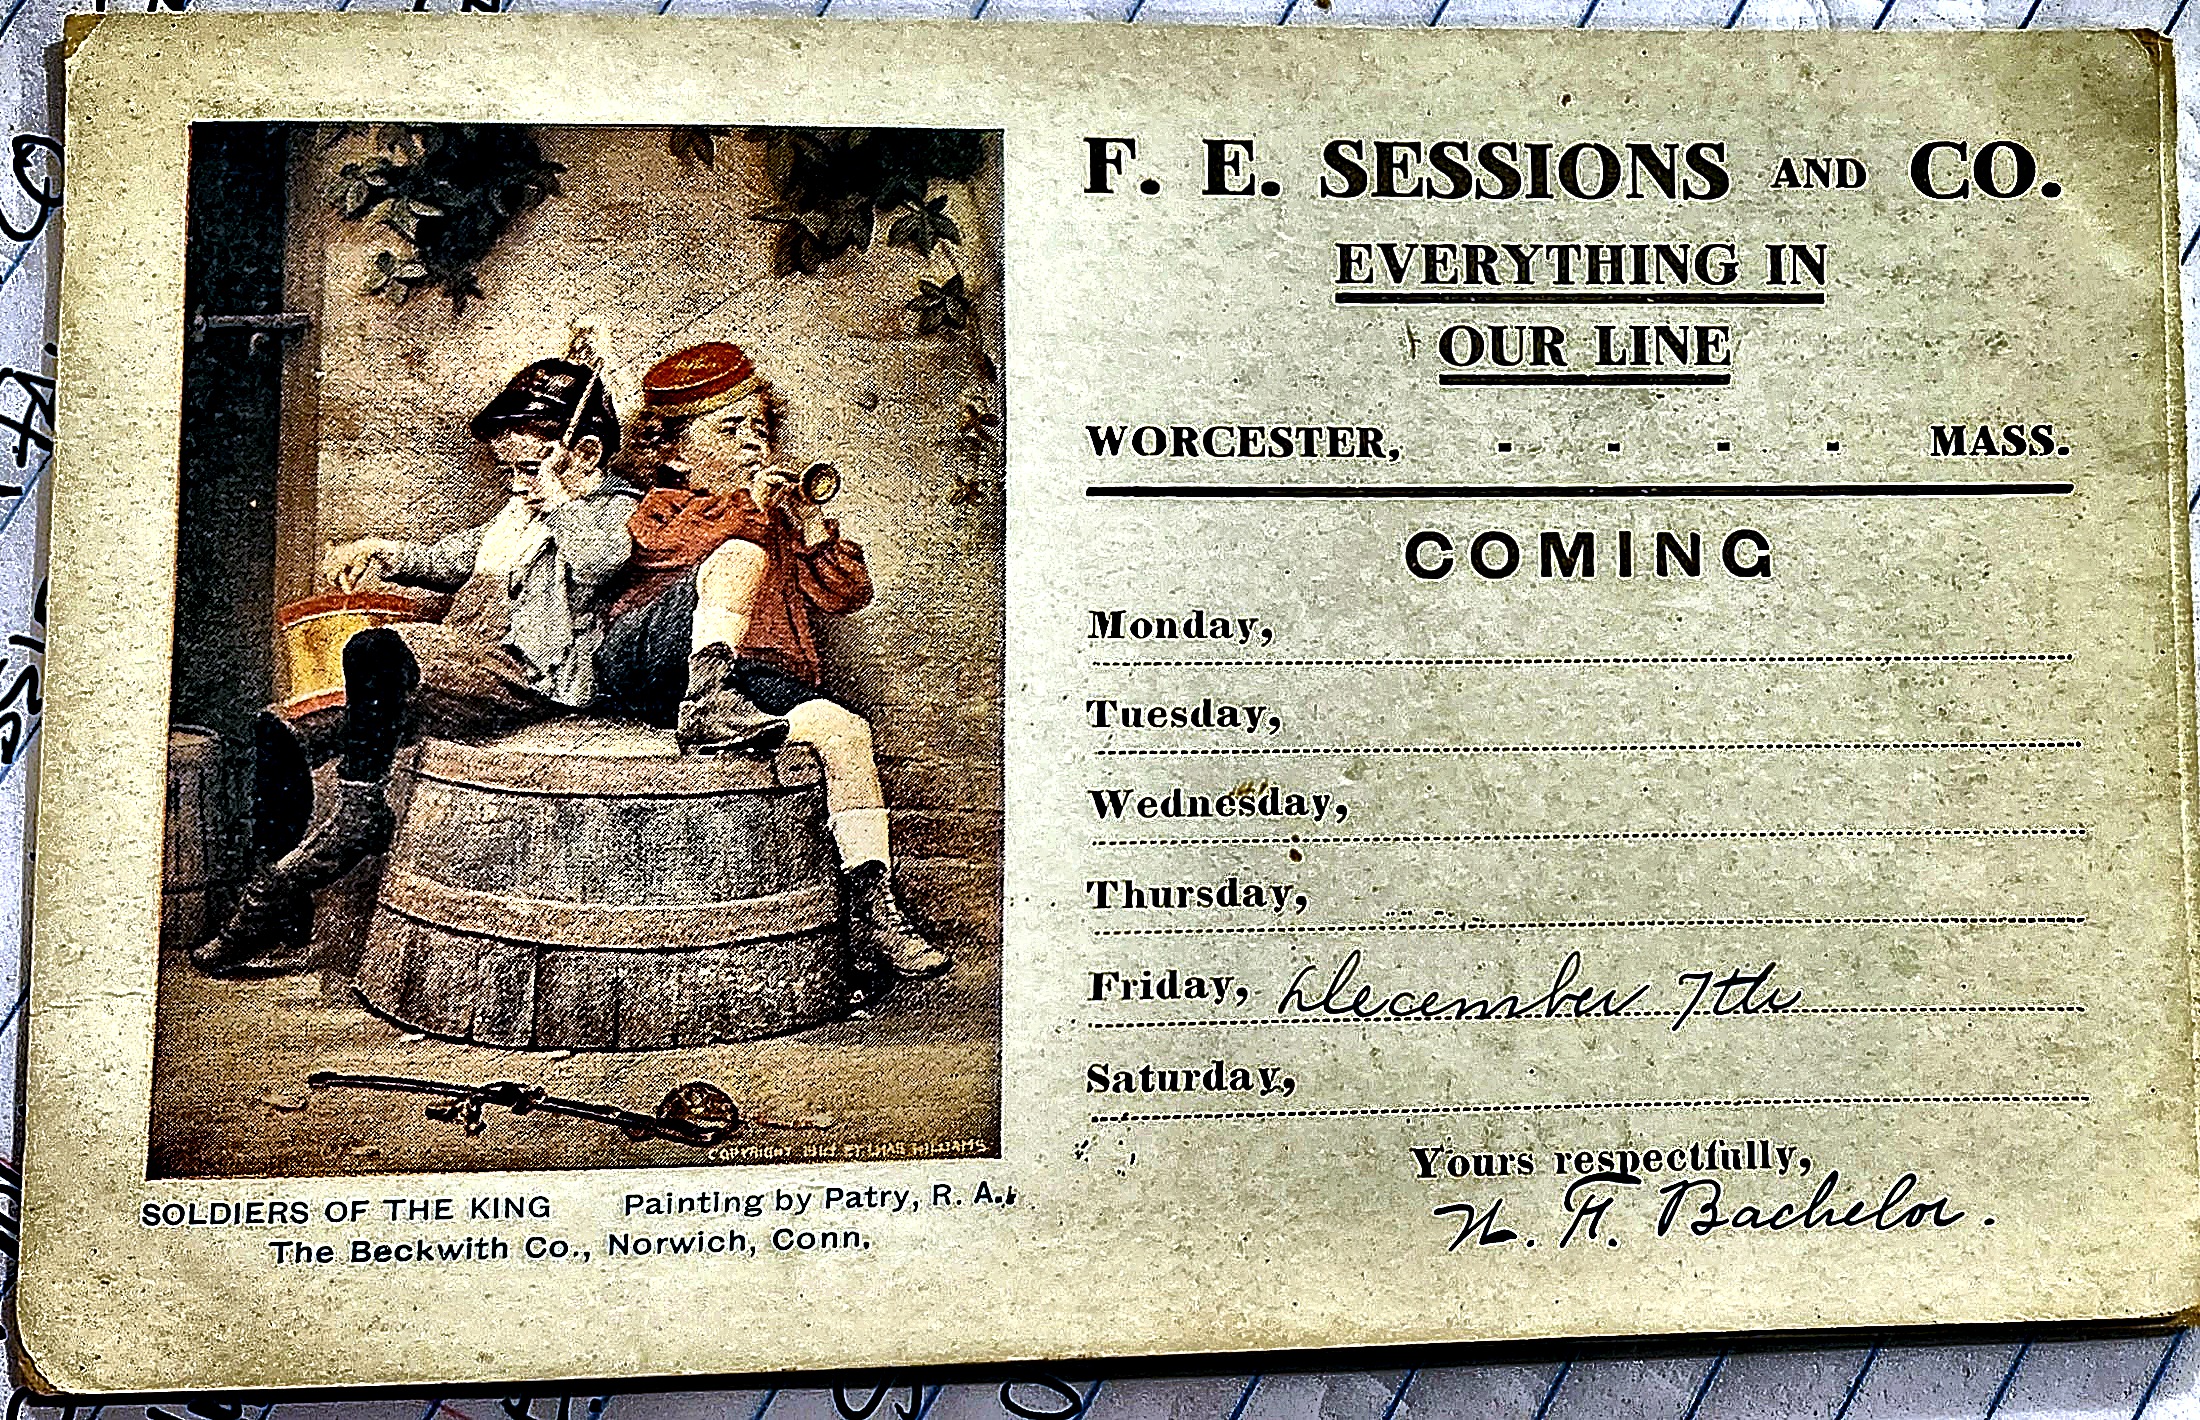 F. E. SESSIONS AND CO.
EVERYTHING IN
OUR LINE
WORCESTER, - - - - MASS.
COMING
Monday,
Tuesday,
Wednesday,
Thursday,
Friday, December 7th
Saturday,
Yours respectfully,
N. H. Bachelor.
COPYRIGHT WILLIAMS
SOLDIERS OF THE KING Painting by Patry, R. A.
The Beckwith Co., Norwich, Conn.